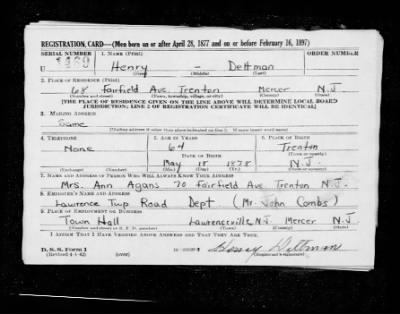 REGISTRATION CARD—(Men born on or after April 28, 1877 and on or before February 16, 1897)
SERIAL NUMBER 1. NAME (Print) ORDER NUMBER
U Henry – Dettman
(First) (Middle) (Last)
2. PLACE OF RESIDENCE (Print)
68 Fairfield Ave. Trenton Mercer N.J.
(Number and street) (Town, township, village, or city) (County) (State)
[THE PLACE OF RESIDENCE GIVEN ON THE LINE ABOVE WILL DETERMINE LOCAL BOARD
JURISDICTION; LINE 2 OF REGISTRATION CERTIFICATE WILL BE IDENTICAL]
3. MAILING ADDRESS
Same
[Mailing address if other than place indicated on line 2. If same insert word same]
4. TELEPHONE 5. AGE IN YEARS 6. PLACE OF BIRTH
None 64 Trenton
DATE OF BIRTH (Town or county)
May 18 1878 N.J.
(Exchange) (Number) (Mo.) (Day) (Yr.) (State or country)
7. NAME AND ADDRESS OF PERSON WHO WILL ALWAYS KNOW YOUR ADDRESS
Mrs. Ann Agans 70 Fairfield Ave Trenton N.J.
8. EMPLOYER'S NAME AND ADDRESS
Lawrence Twp Road Dept (Mr. John Combs)
9. PLACE OF EMPLOYMENT OR BUSINESS
Town Hall Lawrenceville, N.J. Mercer N.J.
(Number and street or R. F. D. number) (Town) (County) (State)
I AFFIRM THAT I HAVE VERIFIED ABOVE ANSWERS AND THAT THEY ARE TRUE.
D. S. S. Form 1
(Revised 4-1-42) (over) Henry Dettman
(Registrant's signature)